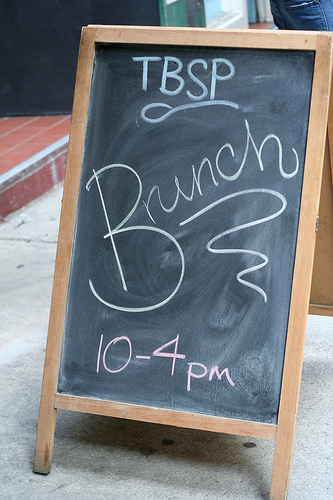 TBSP
Brunch
10-4pm